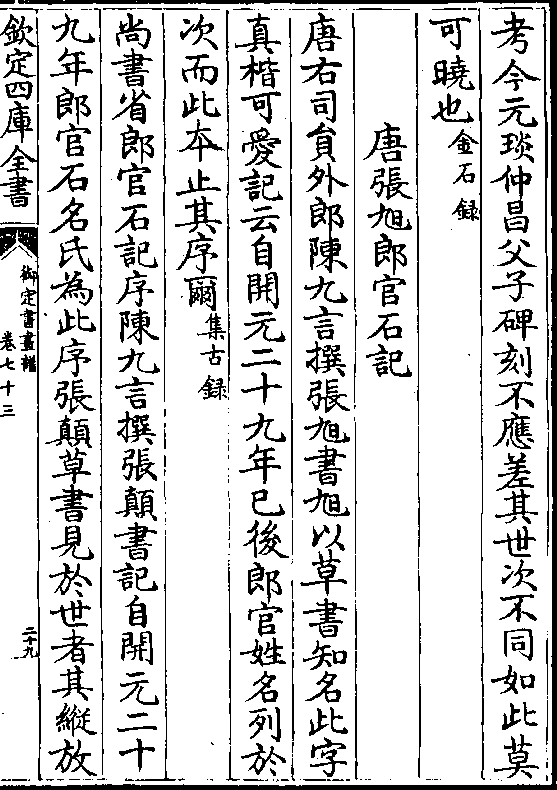 考今元琰仲昌父子碑刻不應差其世次不同如此莫
可曉也金石録
唐張旭郎官石記
唐右司員外郎陳九言撰張旭書旭以草書知名此字
真楷可愛記云自開元二十九年已後郎官姓名列於
次而此本止其序爾集古録
尚書省郎官石記序陳九言撰張顛書記自開元二十
九年郎官石名氏為此序張顛草書見於世者其縱放
欽定四庫全書
御定書畫譜
卷七十三
二十九